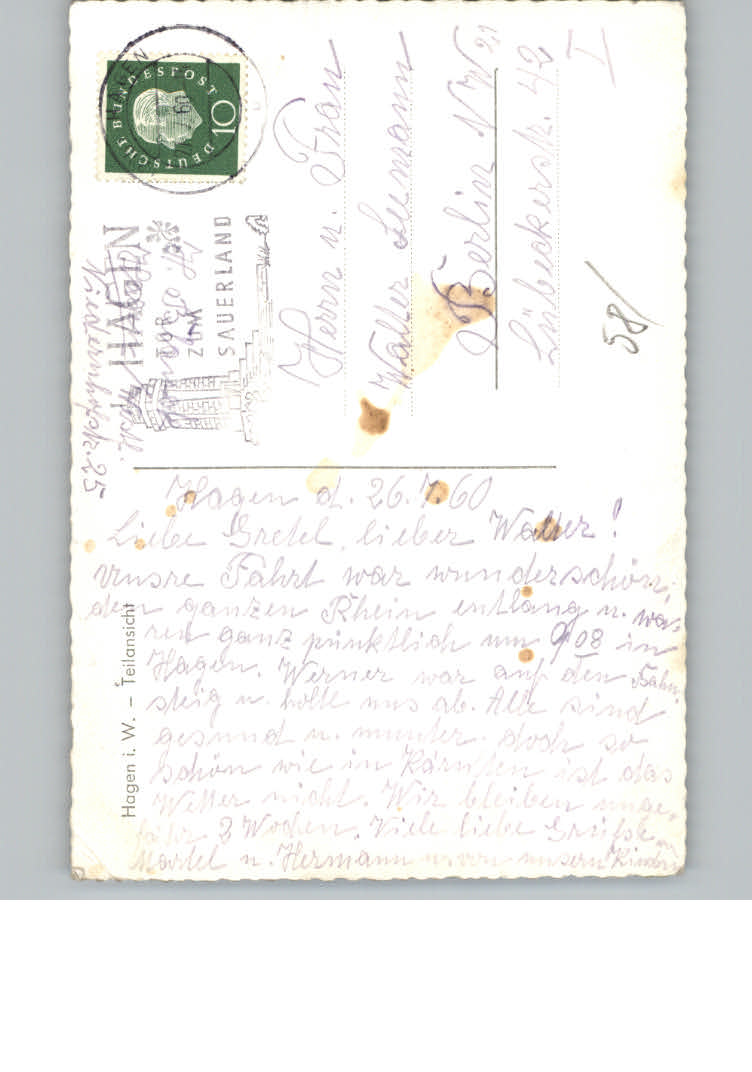 Hagen d. 26.7.60
Liebe Gretel, lieber Walter!
unsre Fahrt war wunderschön,
den ganzen Rhein entlang u. wa-
ren ganz pünktlich um 9 08 in
Hagen. Werner war auf den Bahn
steig u. holte uns ab. Alle sind
gesund u. munter. doch so
schön wie in Kärnten ist das
Wetter nicht. Wir bleiben unge-
fähr 2 Wochen. Viele liebe Grüße
Martel u. Hermann u. von unsern Kindern
Hagen i. W. – Teilansicht
DEUTSCHE BUNDESPOST
10
HAGEN
HAGEN
TOR
ZUM
SAUERLAND
Herrn u. Frau
Walter
Berlin NW 21
Lübeckerstr. 42
I
58/